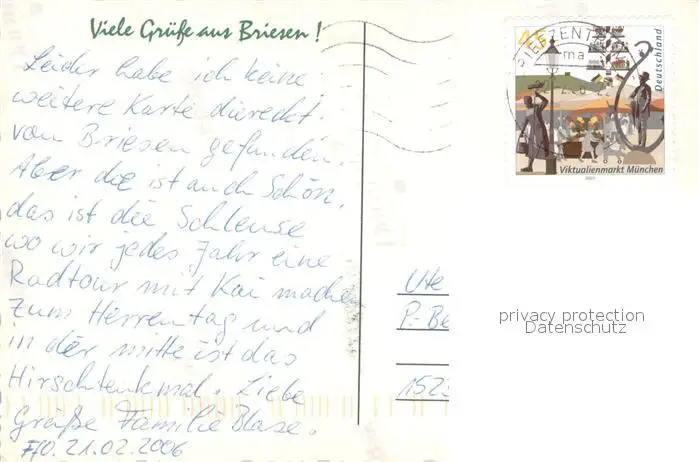 Viele Grüße aus Briesen!
Leider habe ich keine
weitere Karte diereckt
von Briesen gefunden.
Aber die ist auch Schön,
das ist die Schleuse
wo wir jedes Jahr eine
Radtour mit Kai machen
zum Herrentag und
in der mitte ist das
Hirschtenkmal. Liebe
grüße Familie Blase.
FfO. 21.02.2006
BRIEFZENTRUM
ma
45
Deutschland
Viktualienmarkt München
Ute
P.-Be
1523
privacy protection
Datenschutz